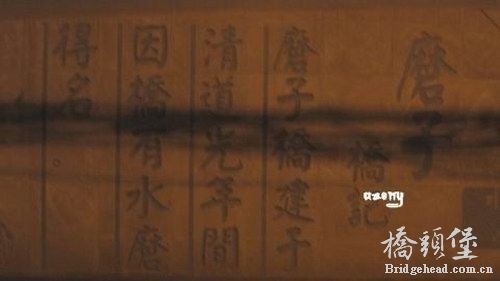 磨子
橋記
磨子橋建于
清道光年間
因橋有水磨
得名。
橋頭堡
Bridgehead.com.cn